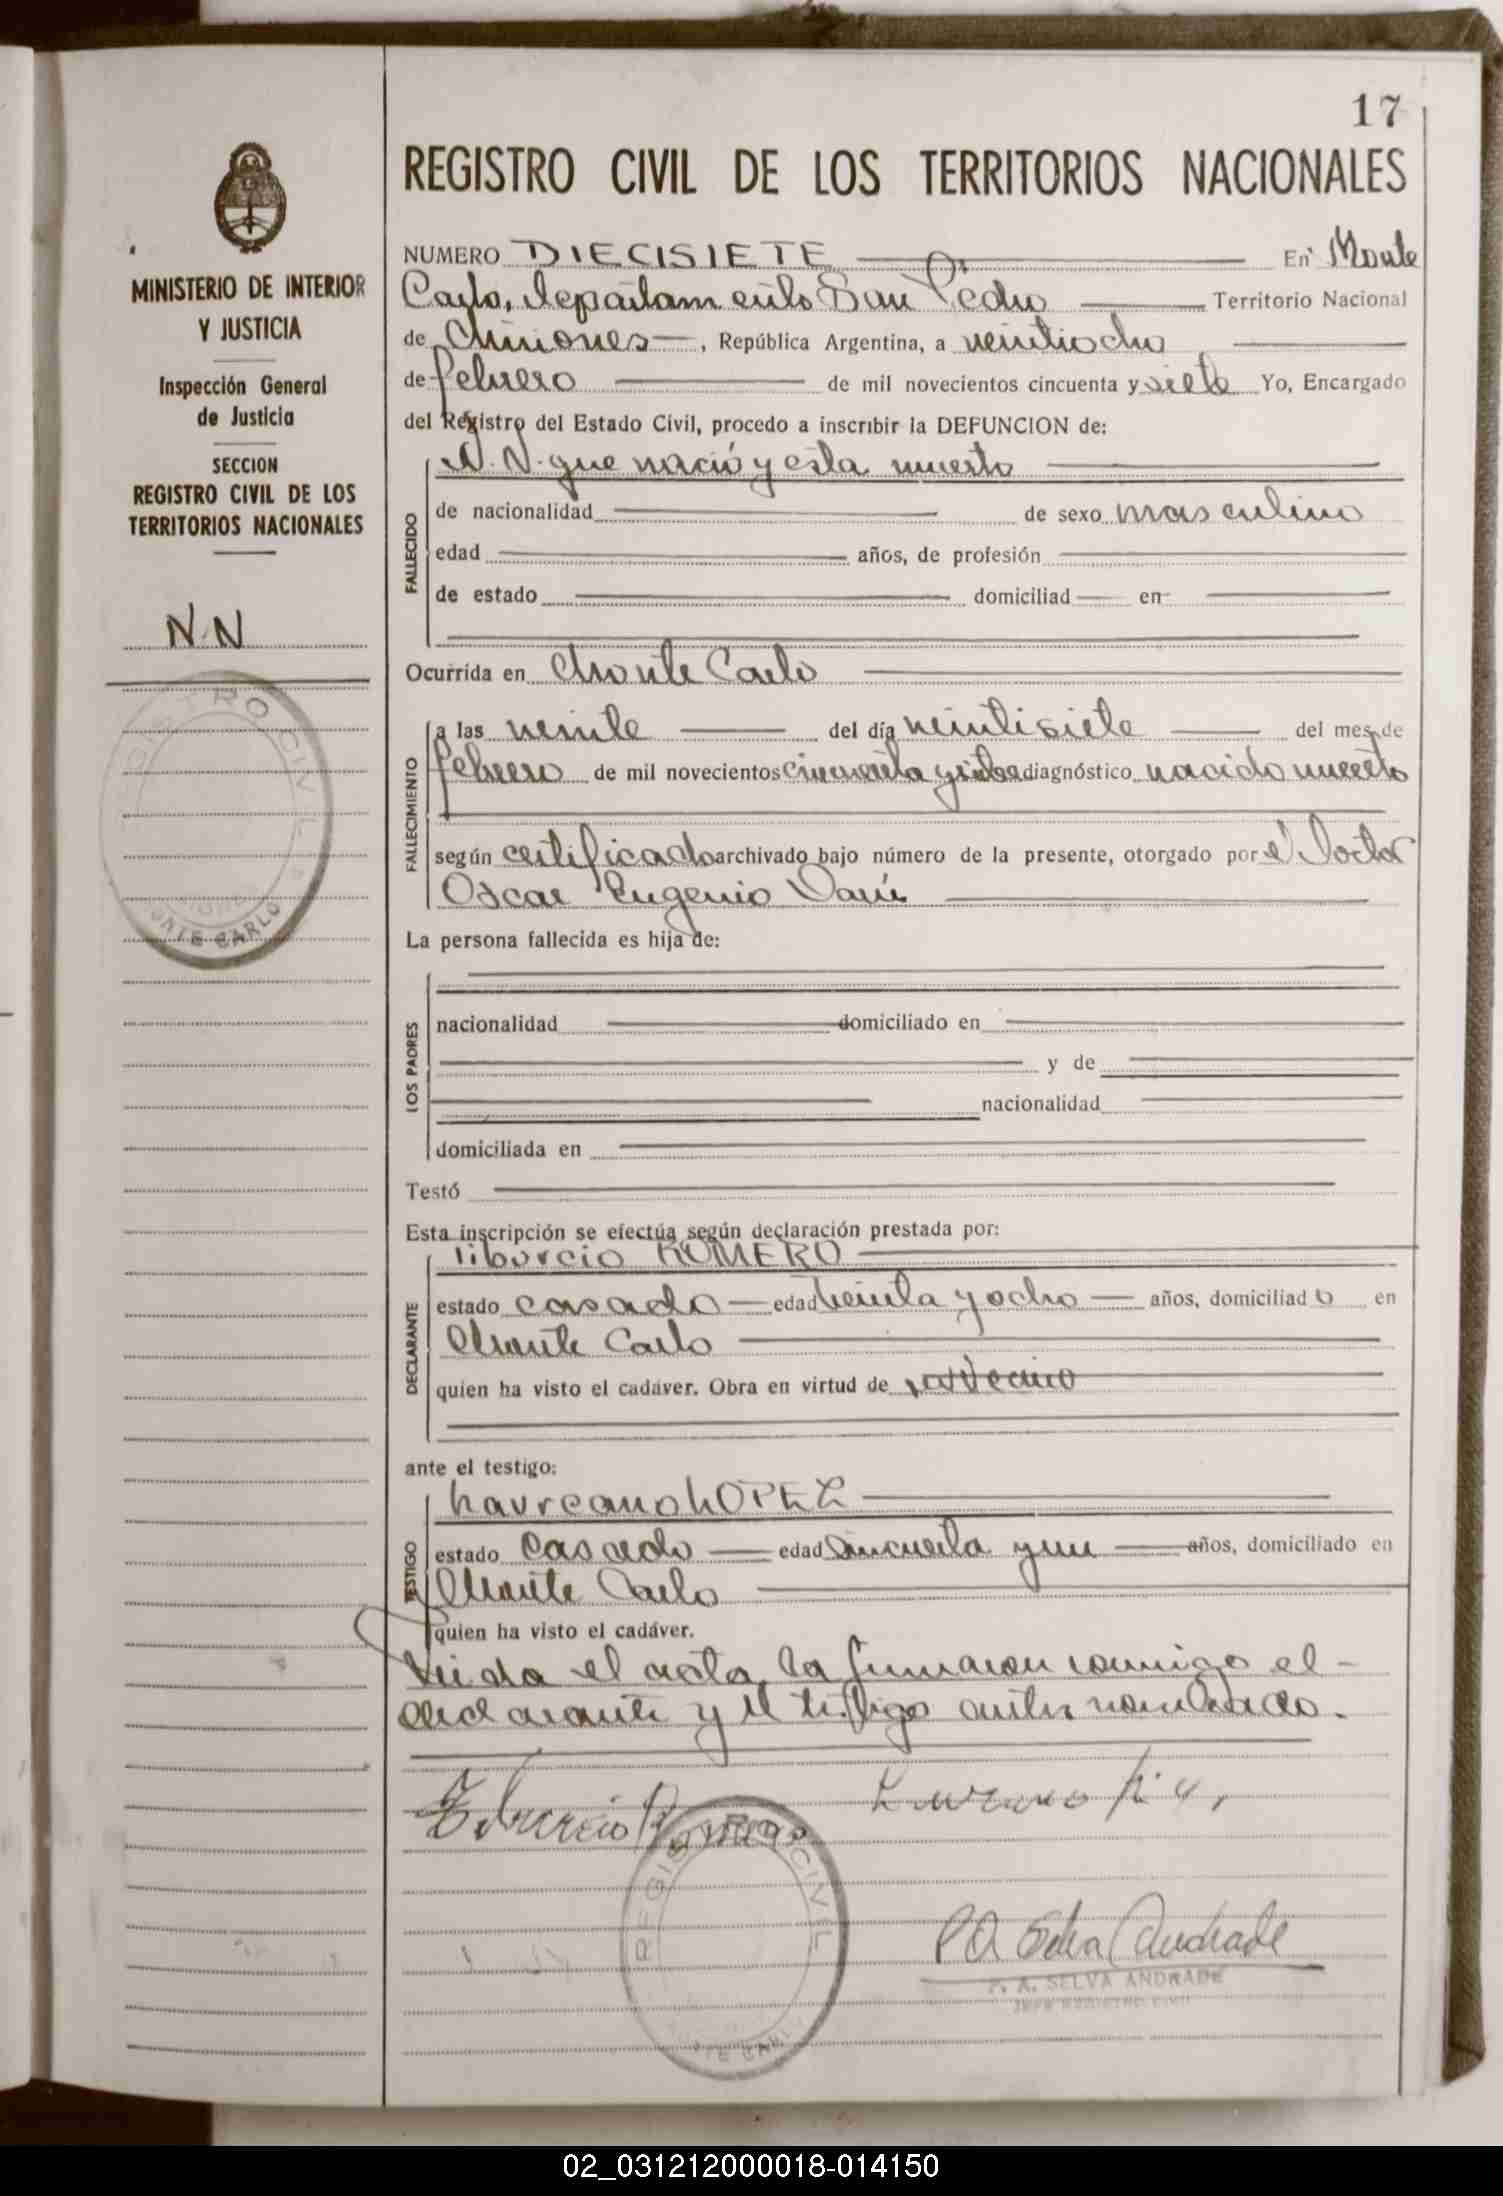 17
MINISTERIO DE INTERIOR
Y JUSTICIA
Inspección General
de Justicia
SECCION
REGISTRO CIVIL DE LOS
TERRITORIOS NACIONALES
N.N
REGISTRO CIVIL
MONTE CARLO
REGISTRO CIVIL DE LOS TERRITORIOS NACIONALES
NUMERO DIECISIETE En Monte
Carlo, departamento San Pedro Territorio Nacional
de Misiones, República Argentina, a veintiocho
de febrero de mil novecientos cincuenta y siete Yo, Encargado
del Registro del Estado Civil, procedo a inscribir la DEFUNCION de:
FALLECIDO
N.N. que nació y esta muerto
de nacionalidad de sexo masculino
edad años, de profesión
de estado domiciliad en
Ocurrida en Monte Carlo
FALLECIMIENTO
a las veinte del día veintisiete del mes de
febrero de mil novecientos cincuenta y siete diagnóstico nacido muerto
según certificado archivado bajo número de la presente, otorgado por el Doctor
Oscar Eugenio
La persona fallecida es hija de:
LOS PADRES
nacionalidad domiciliado en
y de
nacionalidad
domiciliada en
Testó
Esta inscripción se efectúa según declaración prestada por:
DECLARANTE
Tiburcio ROMERO
estado casado edad treinta y ocho años, domiciliado en
Monte Carlo
quien ha visto el cadáver. Obra en virtud de
ante el testigo:
TESTIGO
Laureano LOPEZ
estado Casado edad cincuenta y un años, domiciliado en
Monte Carlo
quien ha visto el cadáver.
Leida el acta, la firmaron conmigo el
declarante y el testigo antes nombrado.
Tiburcio Romero
REGISTRO CIVIL
MONTE CARLO
P A Selva Andrade
P. A. SELVA ANDRADE
JEFE REGISTRO CIVIL
02_031212000018-014150